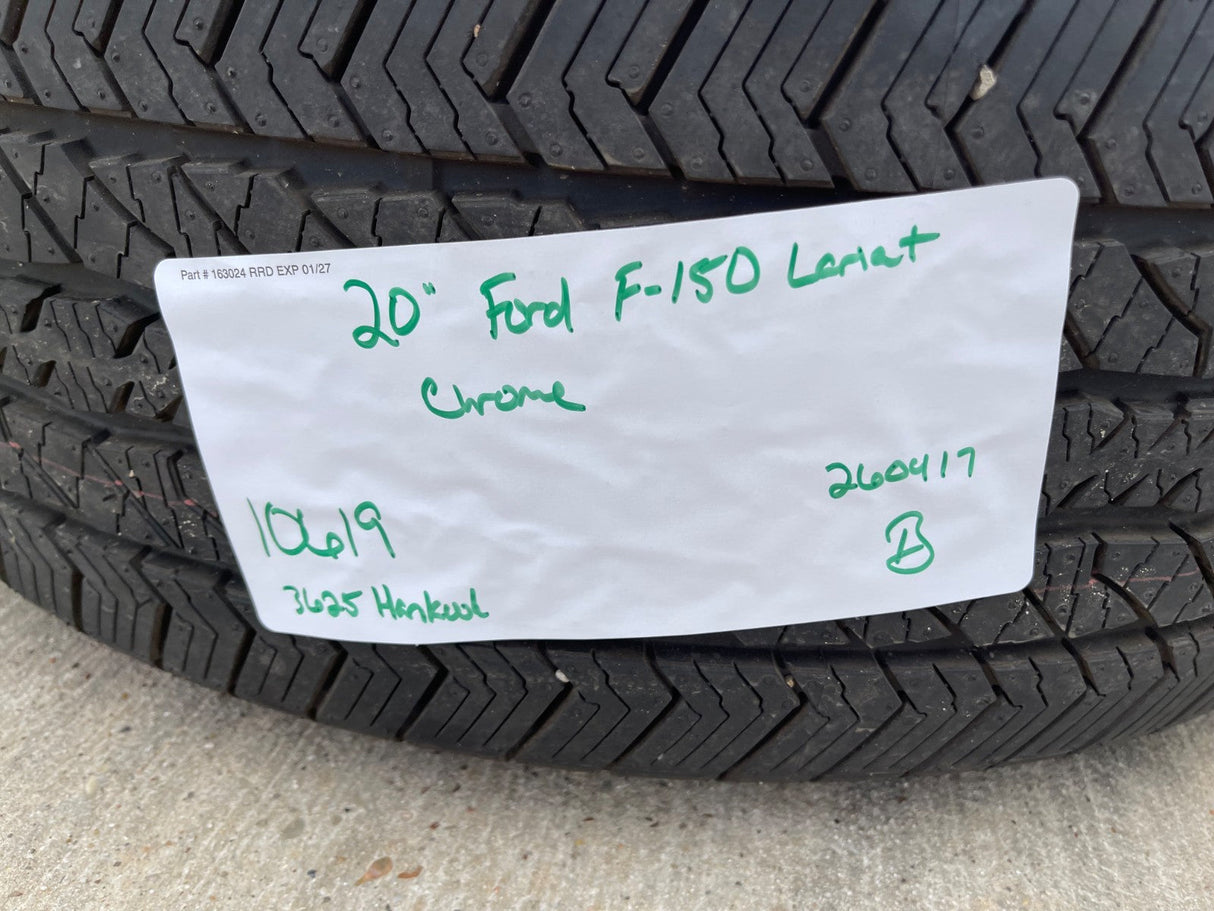 Part # 163024 RRD EXP 01/27
20" Ford F-150 Lariat
Chrome
260417
B
10619
3625 Hankook